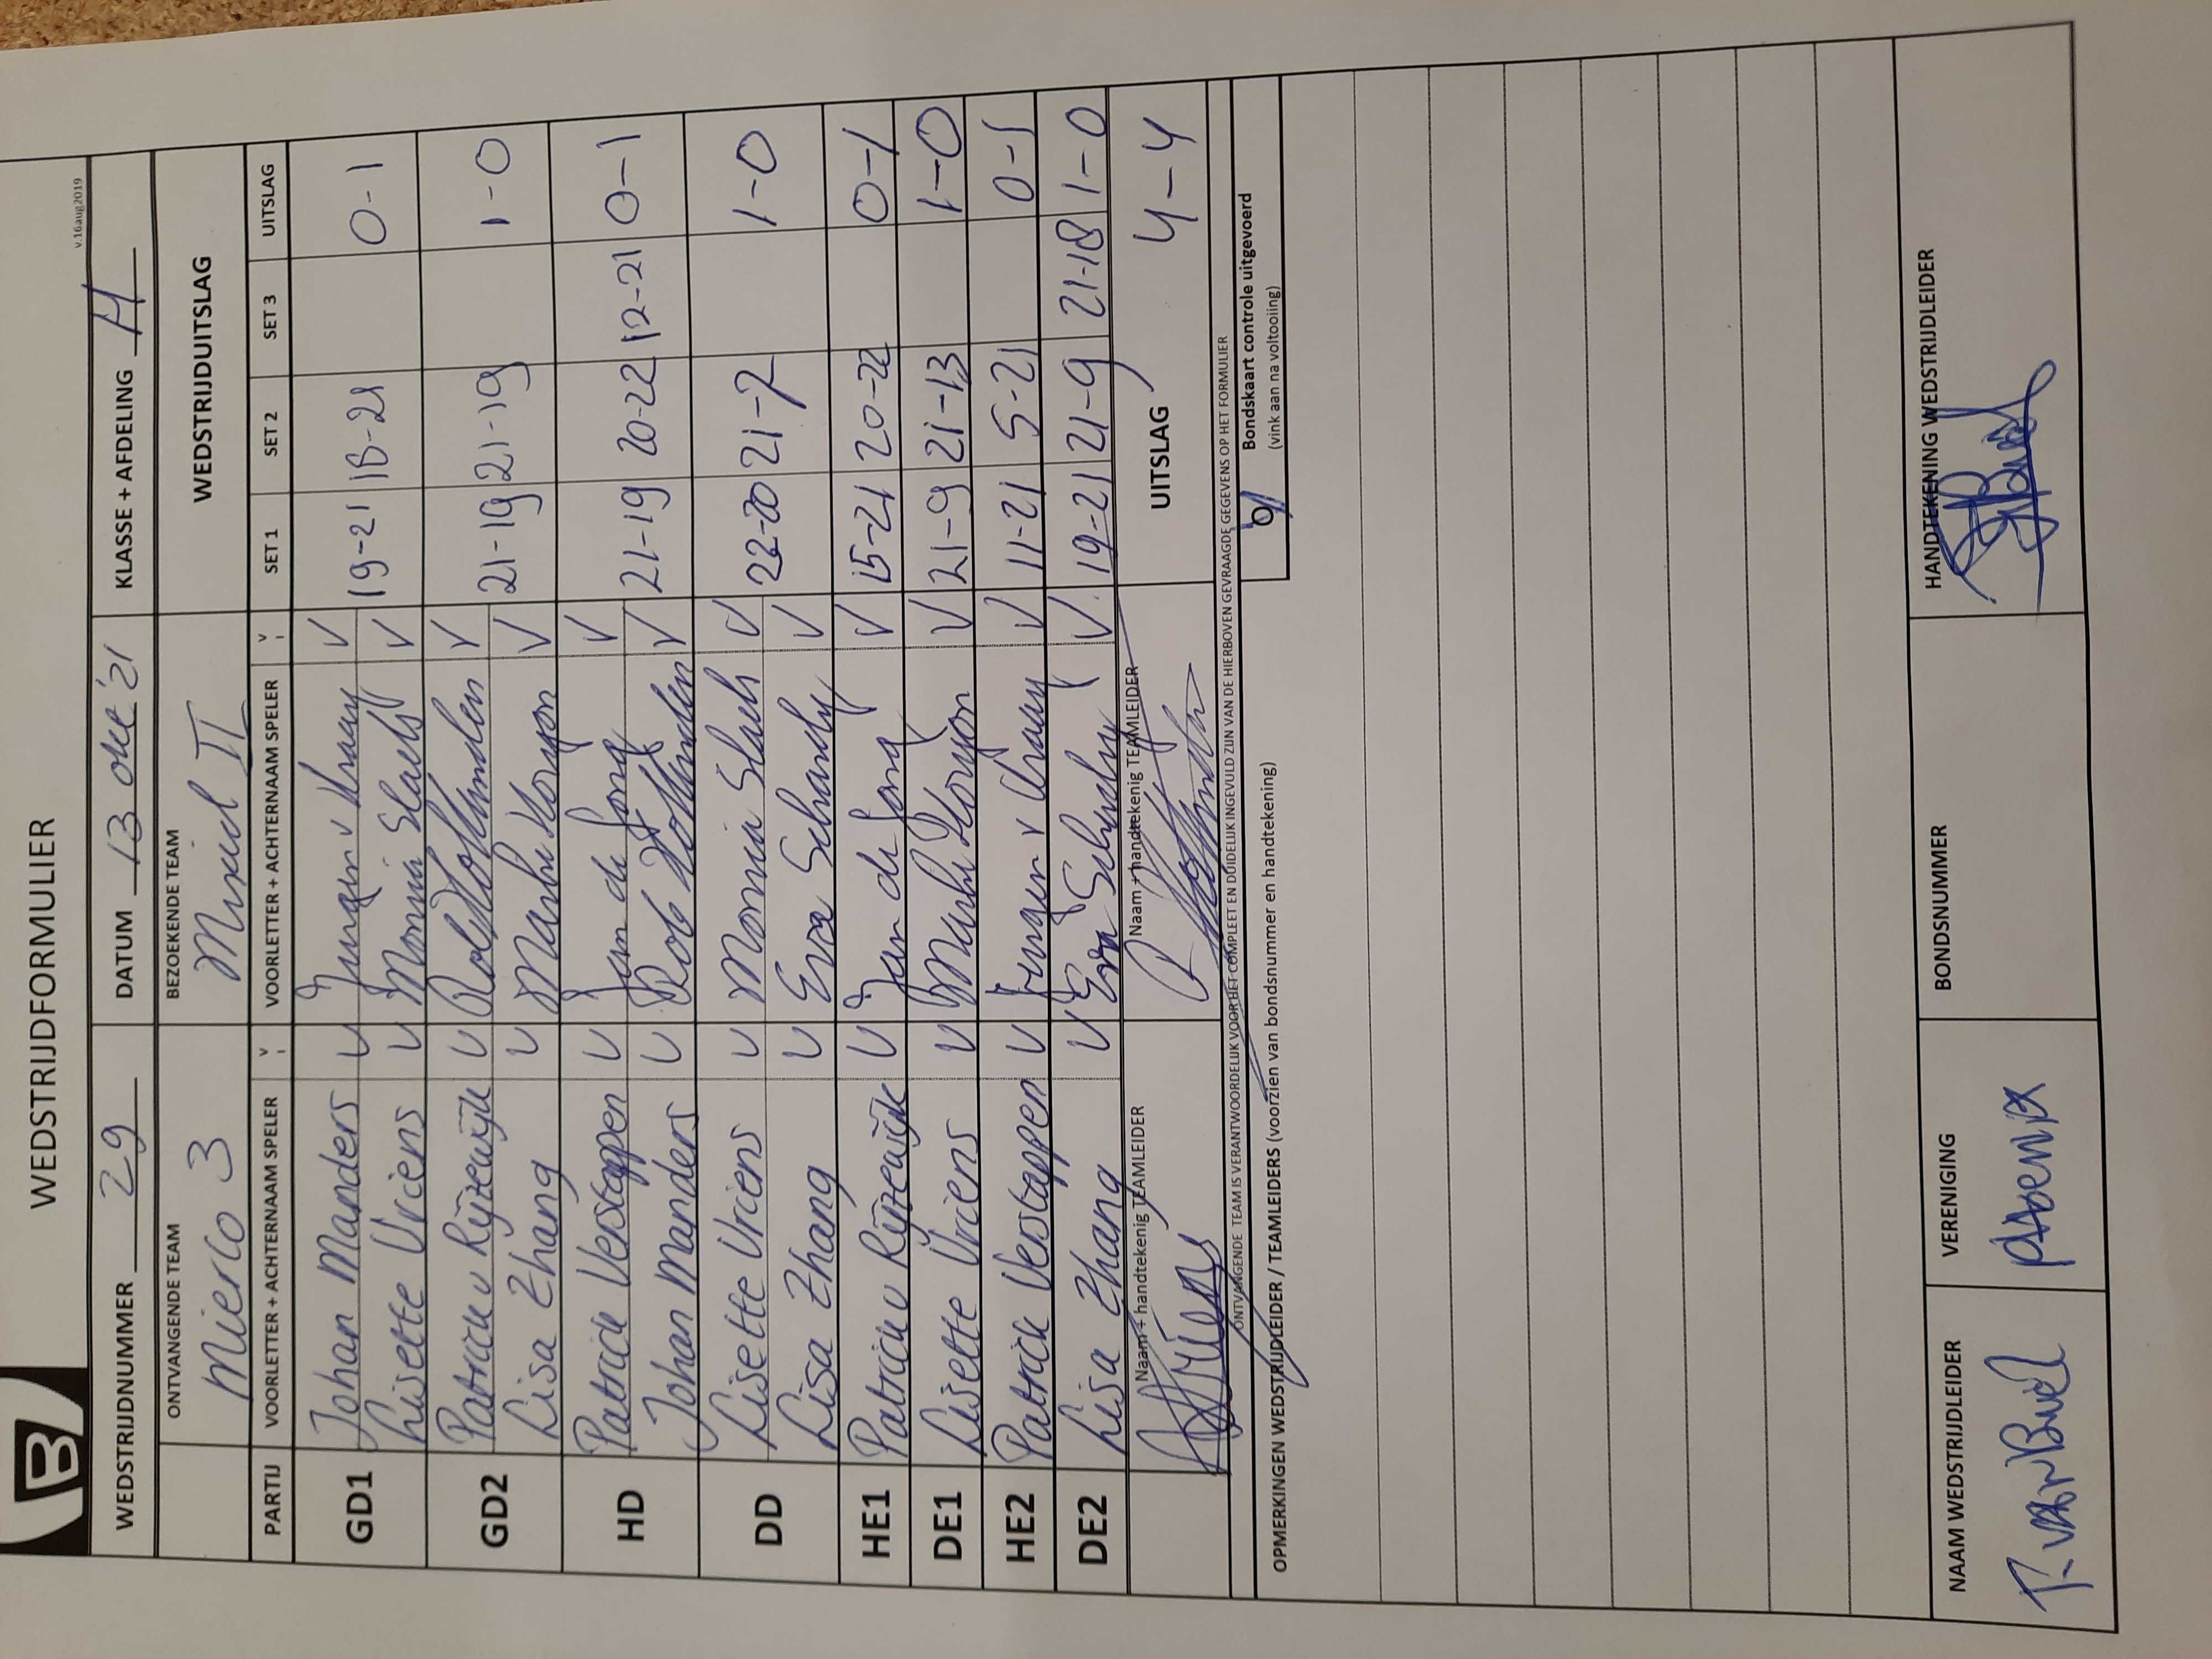 WEDSTRIJDFORMULIER
v.16aug2019
WEDSTRIJDNUMMER 29 DATUM 13 okt '21 KLASSE + AFDELING H
ONTVANGENDE TEAM BEZOEKENDE TEAM WEDSTRIJDUITSLAG
Mierlo 3 II
PARTIJ VOORLETTER + ACHTERNAAM SPELER V VOORLETTER + ACHTERNAAM SPELER V SET 1 SET 2 SET 3 UITSLAG
GD1 Johan Manders V Jurgen v V
Lisette Vriens V V 19-21 18-21 0-1
GD2 Patrick v Rijzewijk V Rob Hollanders V
Lisa Zhang V V 21-19 21-19 1-0
HD Patrick Verstappen V Jan de Jong V
Johan Manders V Rob Hollanders V 21-19 20-22 12-21 0-1
DD Lisette Vriens V V
Lisa Zhang V Eva V 22-20 21-7 1-0
HE1 Patrick v Rijzewijk V Jan de Jong V 15-21 20-22 0-1
DE1 Lisette Vriens V V 21-9 21-13 1-0
HE2 Patrick Verstappen V Jurgen v V 11-21 5-21 0-1
DE2 Lisa Zhang V Eva V 19-21 21-9 21-18 1-0
Naam + handtekenig TEAMLEIDER Naam + handtekenig TEAMLEIDER UITSLAG 4-4
ONTVANGENDE TEAM IS VERANTWOORDELIJK VOOR HET COMPLEET EN DUIDELIJK INGEVULD ZIJN VAN DE HIERBOVEN GEVRAAGDE GEGEVENS OP HET FORMULIER
OPMERKINGEN WEDSTRIJDLEIDER / TEAMLEIDERS (voorzien van bondsnummer en handtekening) Bondskaart controle uitgevoerd
(vink aan na voltooiing)
NAAM WEDSTRIJDLEIDER VERENIGING BONDSNUMMER HANDTEKENING WEDSTRIJDLEIDER